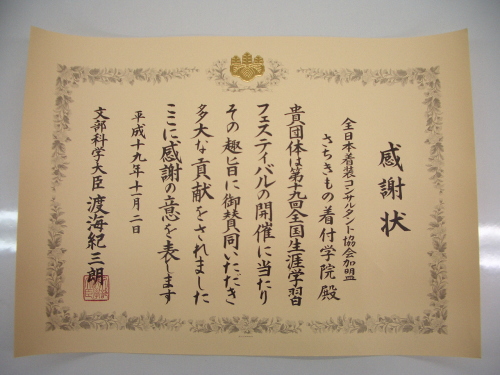 感謝状
全日本着装コンサルタント協会加盟
さちきもの着付学院 殿
貴団体は第十九回全国生涯学習
フェスティバルの開催に当たり
その趣旨に御賛同いただき
多大な貢献をされました
ここに感謝の意を表します
平成十九年十一月二日
文部科学大臣 渡海紀三朗